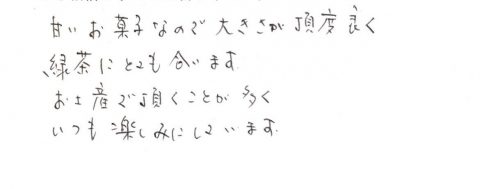 甘いお菓子なので大きさが頂度良く
緑茶にとても合います
お土産で頂くことが多く
いつも楽しみにしています